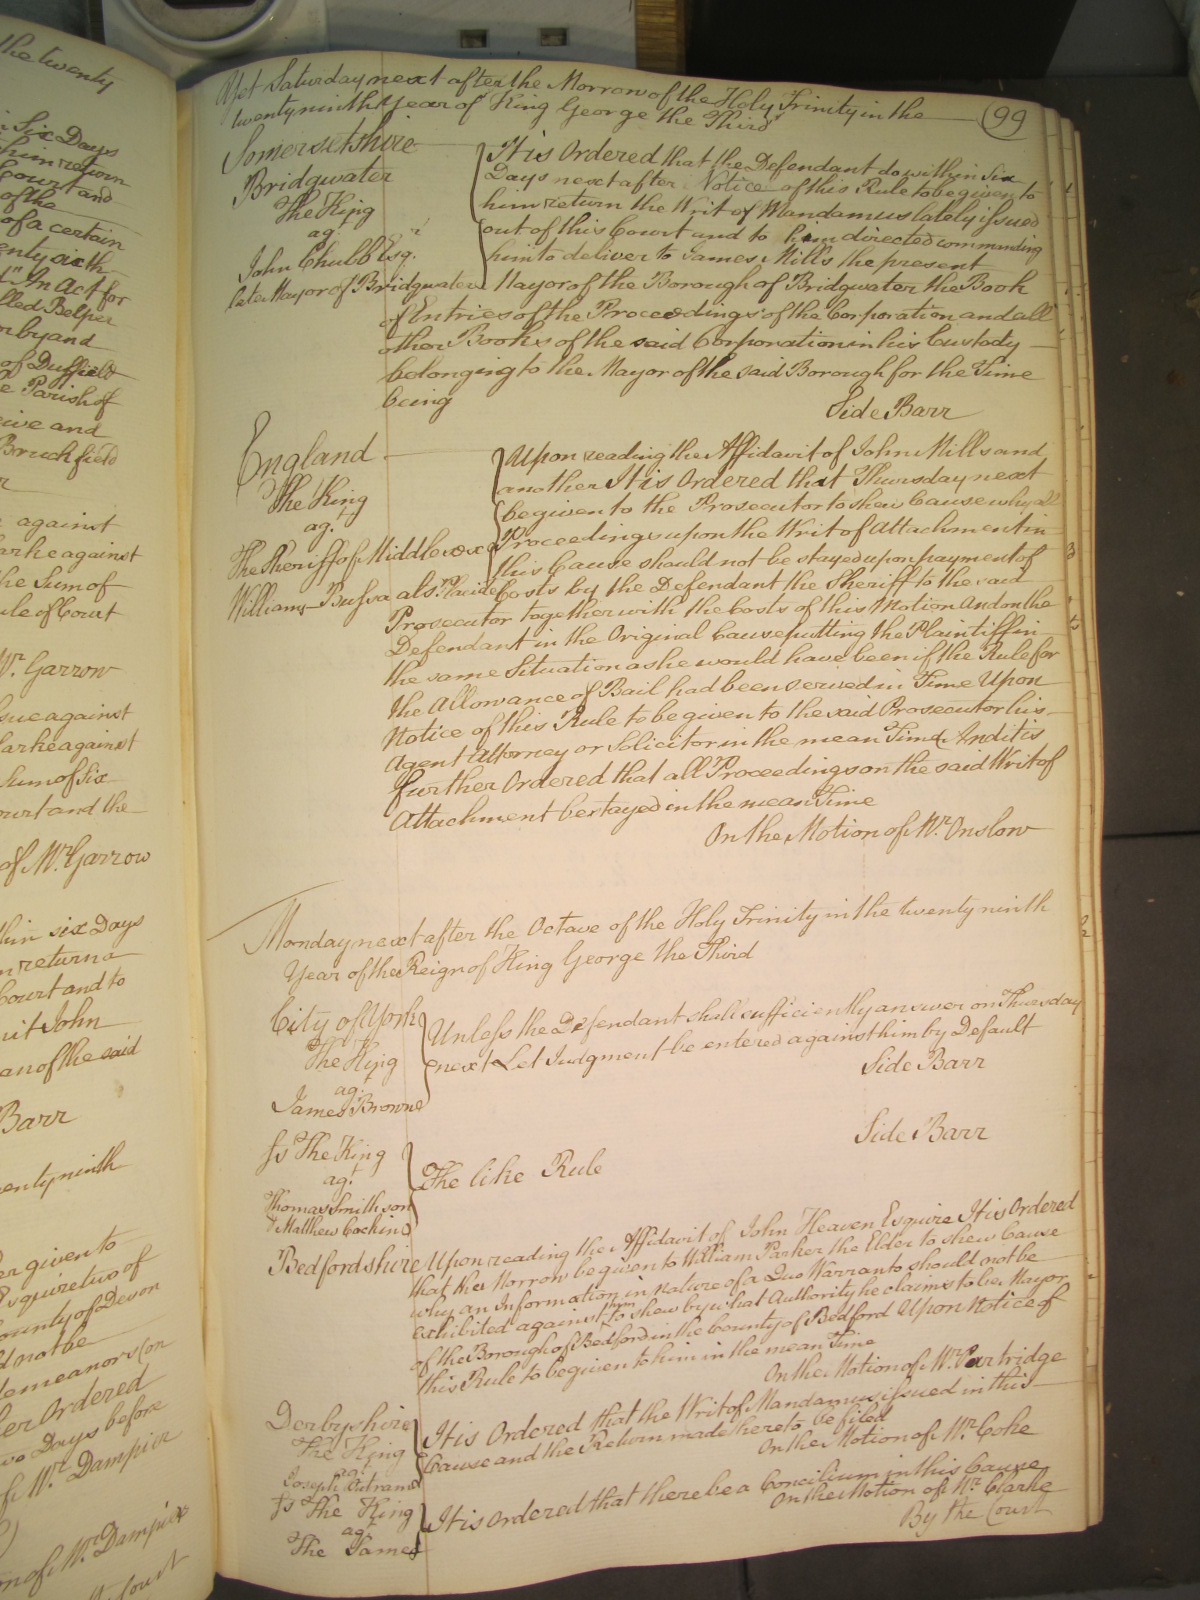 the twenty
in Six Days
him return
Court and
of the
of a certain
enty sixth
d" An Act for
lled Belper
rby and
of Duffield
e Parish of
eive and
Bruchfield
against
larke against
the Sum of
ule of Court
Mr. Garrow
sue against
larke against
Sum of Six
ourt and the
of Mr. Garrow
thin six Days
n return a
Court and to
uit John
an of the said
Barr
enty ninth
er given to
Esquire two of
County of Devon
d not be
demeanors (on
her Ordered
wo Days before
of Mr. Dampier
on of Mr. Dampier
Court
99
Yet Saturday next after the Morrow of the Holy Trinity in the
twenty ninth Year of King George the Third
Somersetshire
Bridgwater
The King
agt.
John Chubb Esq.
late Mayor of Bridgwater
It is Ordered that the Defendant do within Six
Days next after Notice of this Rule to be given to
him return the Writ of Mandamus lately issued
out of this Court and to him directed commanding
him to deliver to James Mills the present
Mayor of the Borough of Bridgwater the Book
of Entries of the Proceedings of the Corporation and all
other Books of the said Corporation in his Custody
belonging to the Mayor of the said Borough for the Time
being
Side Barr
England
The King
agt.
The Sheriff of Middlesex
Williams Bussa als. Placide
Upon reading the Affidavit of John Mills and
another It is Ordered that Thursday next
be given to the Prosecutor to shew Cause why all
Proceedings upon the Writ of Attachment in
this Cause should not be stayed upon payment of
Costs by the Defendant the Sheriff to the said
Prosecutor together with the Costs of this Motion And on the
Defendant in the Original Cause putting the Plaintiff in
the same Situation as he would have been if the Rule for
the Allowance of Bail had been served in Time Upon
Notice of this Rule to be given to the said Prosecutor his
Agent Attorney or Solicitor in the mean Time And it is
further Ordered that all Proceedings on the said Writ of
Attachment be stayed in the mean Time
On the Motion of Mr. Onslow
Monday next after the Octave of the Holy Trinity in the twenty ninth
Year of the Reign of King George the Third
City of York
The King
agt.
James Browne
Unless the Defendant shall sufficiently answer on Thursday
next Let Judgment be entered against him by Default
Side Barr
Side Barr
Js The King
agt.
Thomas Smithson
& Matthew Cocking
The like Rule
Bedfordshire
Upon reading the Affidavit of John Heaven Esquire It is Ordered
that the Morrow be given to William Parker the Elder to shew Cause
why an Information in nature of a Quo Warranto should not be
exhibited against him to shew by what Authority he claims to be Mayor
of the Borough of Bedford in the County of Bedford Upon Notice of
this Rule to be given to him in the mean Time
On the Motion of Mr. Partridge
Derbyshire
The King
agt.
Joseph Outram
It is Ordered that the Writ of Mandamus issued in this
Cause and the Return made hereto be filed
On the Motion of Mr. Coke
Js The King
agt.
The Same
It is Ordered that there be a Concilium in this Cause
On the Motion of Mr. Clarke
By the Court